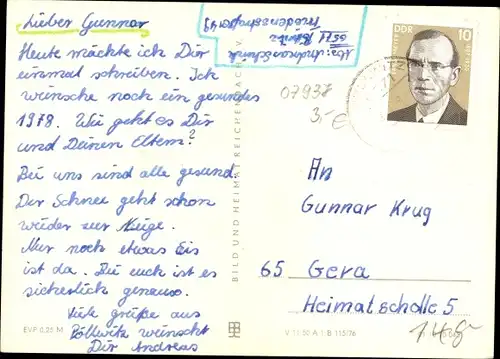 Lieber Gunnar
Heute möchte ich Dir
einmal schreiben. Ich
wünsche noch ein gesundes
1978. Wie geht es Dir
und Deinen Eltern?
Bei uns sind alle gesund.
Der Schnee geht schon
wieder zur Neige.
Nur noch etwas Eis
ist da. Bei euch ist es
sicherlich genauso.
Viele grüße aus
Pöllwitz wünscht
Dir Andreas
Abs: Andreas
6571 Pöllwitz
Friedensstraße 49
07937
3,- €
DDR
10
An
Gunnar Krug
65 Gera
Heimatscholle 5
BILD UND HEIMAT REICHENBACH
EVP 0,25 M
V 11 50 A 1 B 115/76